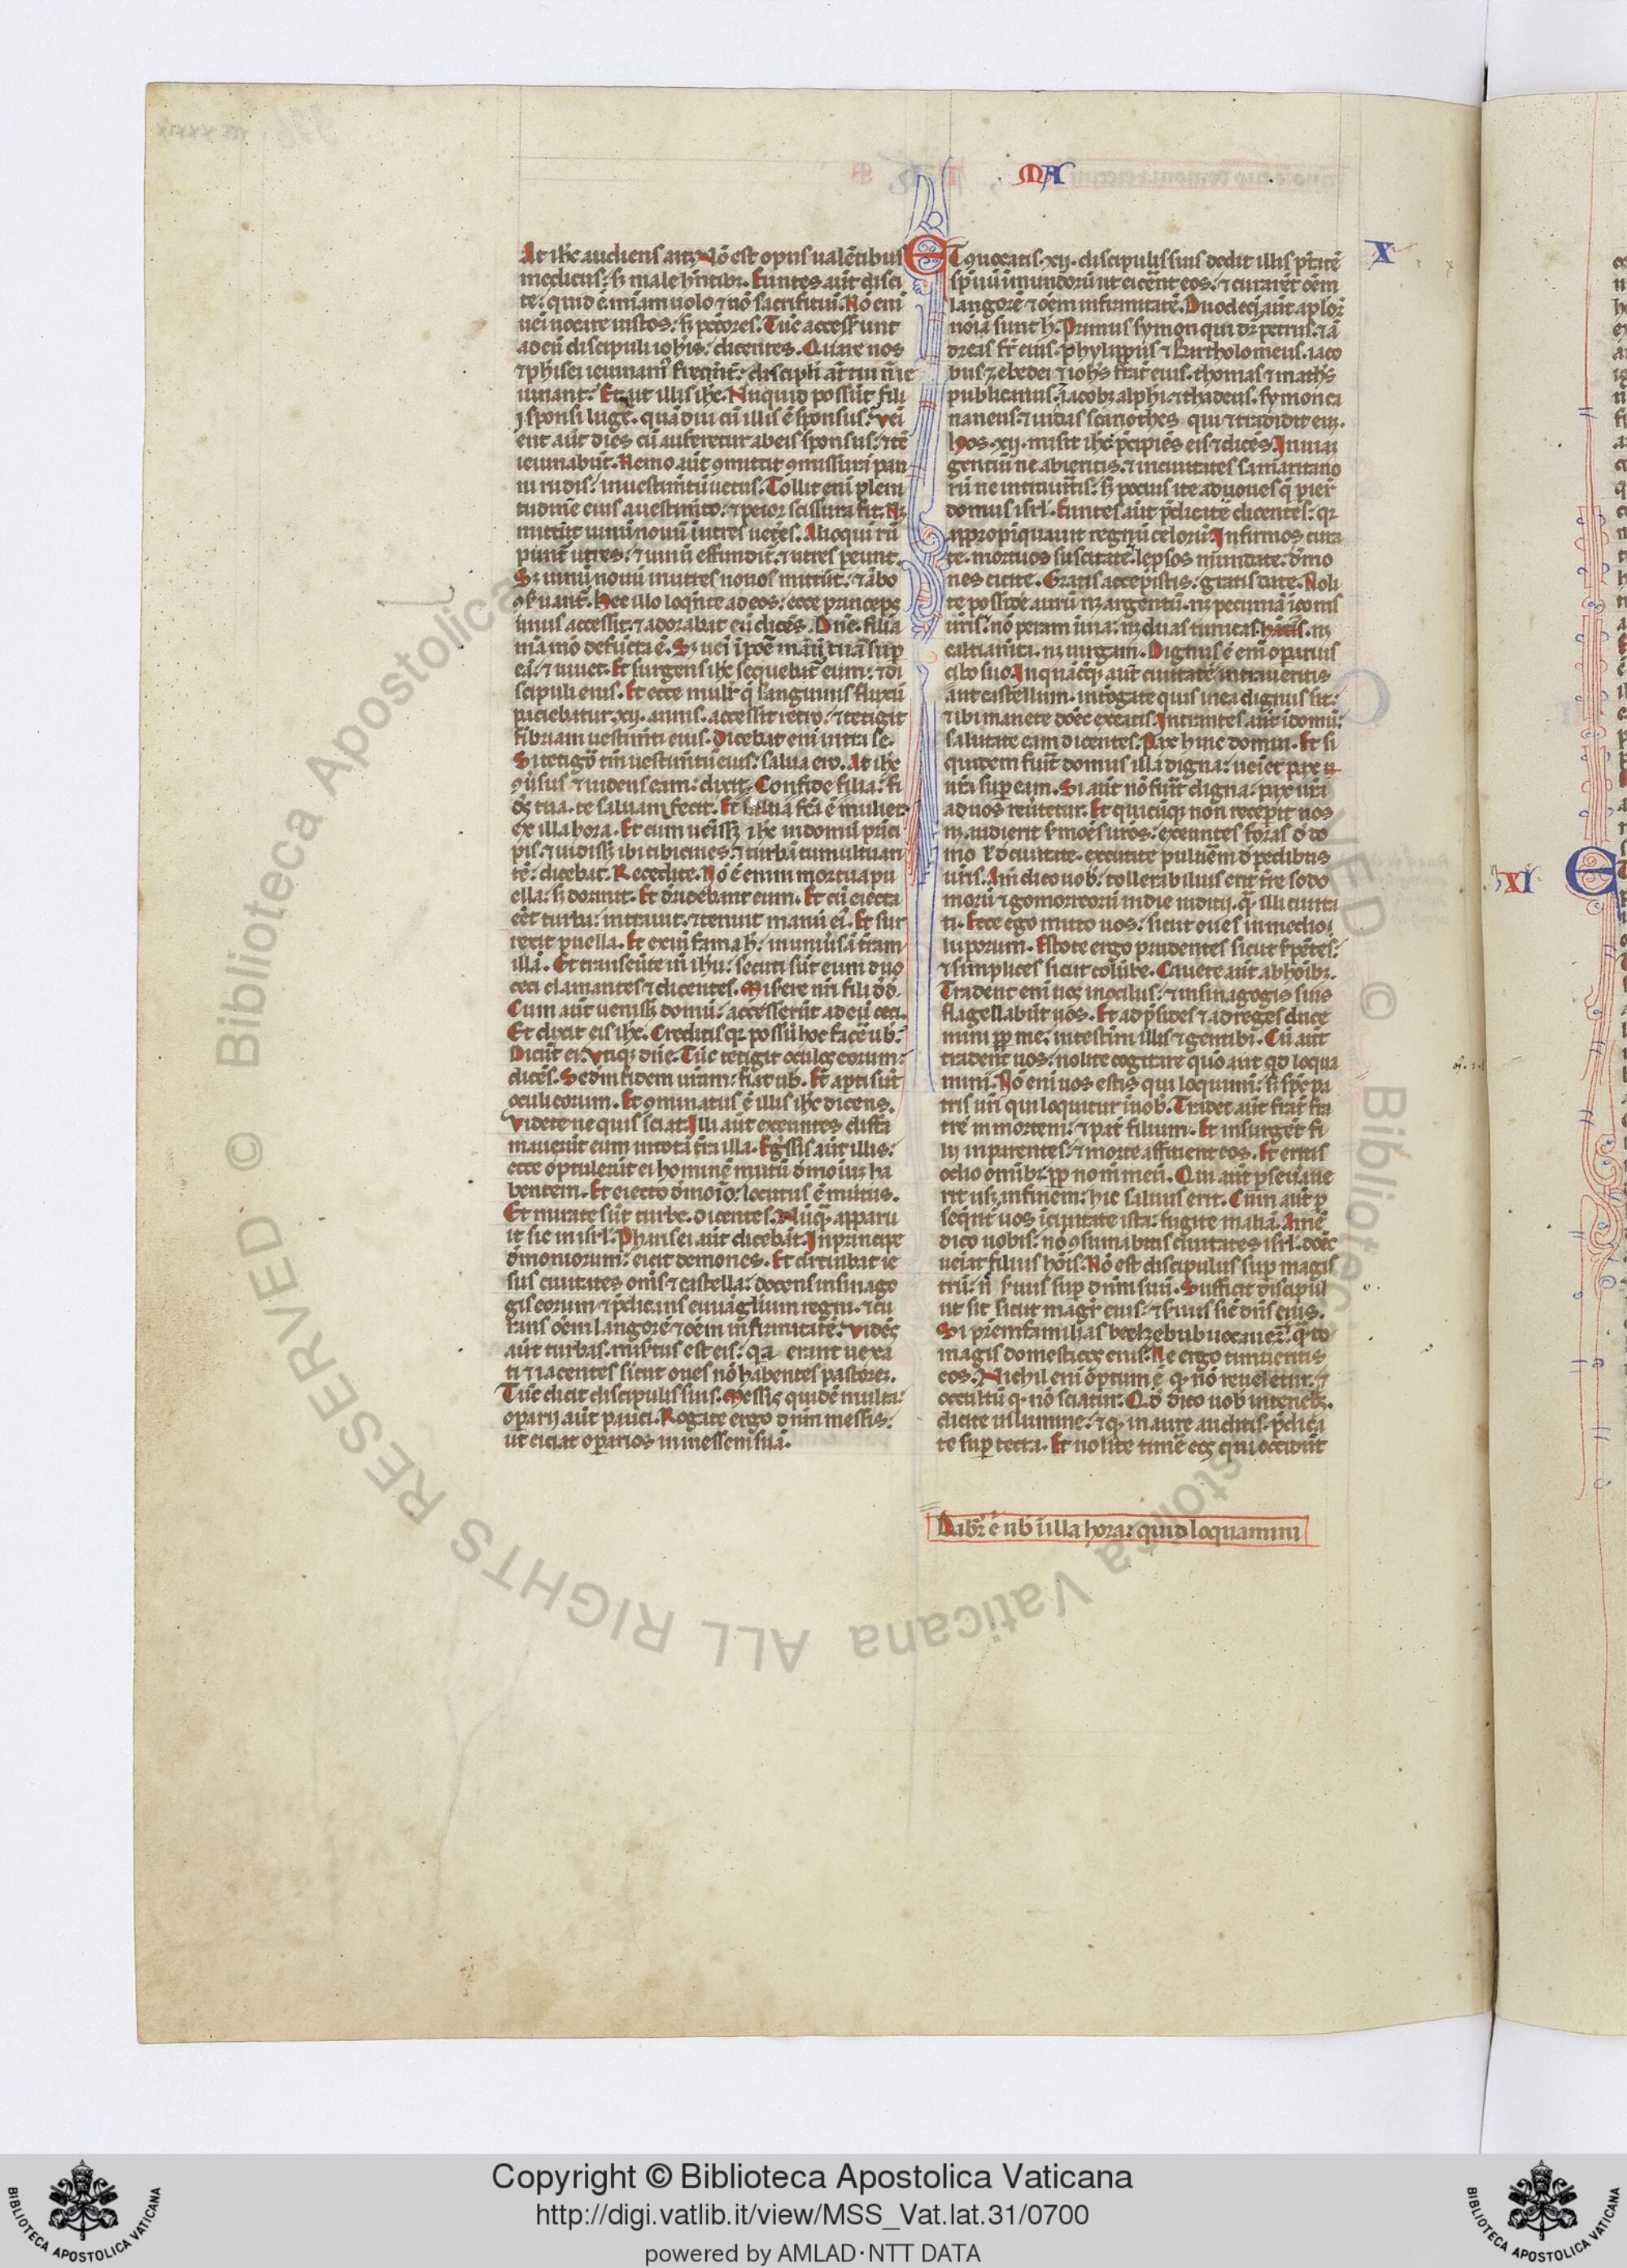 MA
At ih̄c audiens ait. Nō est opus ualētibus
medicus: s; male hn̄tibȝ. Euntes aūt disci
te: quid ē mīam uolo ⁊ nō sacrifitiū. Nō eni
ueni uocare iustos: s; pctōres. Tūc accesserunt
ad eū discipuli ioh̄is: dicentes. Quare nos
iunant. Et ait illis ih̄c. Nūquid possūt filij
sponsi lugē. quādiu cū illis ē sponsus. Veni
ent aūt dies cū auferetur ab eis sponsus: ⁊ tē
ieiunabūt. Nemo aūt ꝯmittit ꝯmissurā pan
ni rudis: in uestim̄tū uetus. Tollit eni pleni
tudinē eius a uestim̄to: ⁊ peior scissura fit. Nȝ
mittūt uinū nouū ī utres uet̄es. Alioqui rū
punt̄ utres: ⁊ uinū effundit̄. ⁊ utres pereunt.
Sȝ uinū nouū in utres nouos mittūt: ⁊ ābo
ꝯseruant̄. Hec illo loqn̄te ad eos: ecce princeps
unus accessit: ⁊ adorabat eū dicēs. Dn̄e. filia
mā mō defūcta ē. Sȝ ueni īpōe manū tuā sup
eā: ⁊ uiuet. Et surgens ih̄c sequebat̄ eum: ⁊ di
scipuli eius. Et ecce mulr̄ q̄ sanguinis fluxū
paciebatur .xij. annis. accessit retro: ⁊ tetigit
fibriam uestimn̄ti eius. Dicebat eni intra se.
Si tetigo tm̄ uestim̄tū eius: salua ero. At ih̄c
ꝯuersus ⁊ uidens eam: dixit. Confide filia: fi
des tua te saluam fecit. Et salua fc̄a ē mulier
ex illa hora. Et cum ueissȝ ih̄c in domū prīci
pis: ⁊ uidissȝ ibi tibicines: ⁊ turbā tumultuan
tē: dicebat. Recedite. Nō ē enim mortua pu
ella: s; dormit. Et deridebant eum. Et cū eiecta
eēt turba: intrauit: ⁊ tenuit manū ei. Et sur
rexit puella. Et exiit fama h̄: in uniuersā terram
illā. Et transeūte in ih̄u: secuti sūt eum duo
ceci clamantes ⁊ dicentes. Misere nr̄i fili dd̄.
Cum aūt uenissȝ domū: accesserūt ad eū ceci.
Et dixit eis ih̄c. Creditis qȝ possū hoc facē ub̄.
Dicūt ei. Vtiqȝ dn̄e. Tūc tetigit oculos eorum:
dicēs. Sedm fidem uram: fiat ub̄. Et apti sūt
oculi eorum. Et ꝯminatus ē illis ih̄c dicens.
Videte ne quis sciat. Illi aūt exeuntes diffa
mauerūt eum in tota tr̄a illa. Egr̄ssis aūt illis:
ecce optulerūt ei hominē mutū demoniū ha
bentem. Et eiecto demoīo: locutus ē mutus.
Et mirate sūt turbe. dicentes. Nūqȝ apparu
it sic in isrl̄. Pharisei aūt dicebāt. In principe
demoniorum: eicit demones. Et circuibat ie
sus ciuitates om̄s ⁊ castella: docens in sinago
gis eorum ⁊ p̄dicans euuāglium regni. ⁊ cu
rans oēm langorē ⁊ oēm infirmitatē. Vidēs
aūt turbas. misertus est eis: qa erant uexa
ti ⁊ iacentes sicut oues nō habentes pastorēȝ.
Tūc dicit discipulis suis. Messis quidē multa:
operarij aūt pauci. Rogate ergo dn̄m messis:
ut eiciat operarios in messem suā.
X
ET ꝯuocatis .xij. discipulis suis dedit illis ptātē
spūū īmundorū ut eicēnt eos: ⁊ curarēt oēm
langorē ⁊ oēm infirmitatē. Duodecī aūt aplor̄
noīa sunt h̄. Primus symon qui dr̄ petrus. ⁊ ā
dreas fr̄ eius. phylippus ⁊ Bartholomeus. iaco
bus zebedei ⁊ ioh̄s frat̄ eius. thomas ⁊ math̄s
publicanus. ⁊ iacobȝ alphi ⁊ thadeus. symon ca
naneus. ⁊ iudas scariothes qui ⁊ tradidit eūȝ.
Hos .xij. misit ih̄c p̄cipiēs eis ⁊ dicēs. In uiaȝ
gentiū ne abieritis. ⁊ in ciuitates samaritano
rū ne intrauīt̄is: s; pocius ite ad oues q̄ pier̄
domus isrl̄. Euntes aūt p̄dicate dicentes: qȝ
appropiquauit regnū celorū. Infirmos cura
te. mortuos suscitate. lepsos mūdate. demo
nes eicite. Gratis accepistis: gratis date. Noli
te possidē aurū nȝ argentū. nȝ pecuniā ī ꝯonis
ur̄is. nō peram ī uia: nȝ duas tunicas. nȝ
caltiam̄ta. nȝ uirgam. Dignus ē eni operarius
cibo suo. In quācūqȝ aūt ciuitatē intraueritis
aūt castellum. intōgate quis in ea dignus sit:
⁊ ibi manete donec exeatis. Intrantes aūt ī domū:
salutate eam dicentes. Pax huic domui. Et si
quidem fuīt domus illa digna: ueiet pax
ur̄a sup eam. Si aūt nō fuīt digna: pax ura
ad uos reūtetur. Et quicūqȝ non recepīt uos
nȝ audierit sermōes uros: exeuntes foras de do
mo ł de ciuitate. excutite puluēm de pedibus
ur̄is. Am̄ dico uob̄: tollerabilius erit tr̄e sodo
morū ⁊ gomorreorū in die iudicij. qȝ illi ciuita
ti. Ecce ego mitto uos: sicut oues in medio
luporum. Estote ergo prudentes sicut serpētes:
⁊ simplices sicut colūbe. Cauete aūt ab hoībȝ.
Tradent eni uos in ꝯcilijs: ⁊ in sinagogis suis
flagellabūt uos. Et ad p̄sides ⁊ ad reges duce
mini ꝓp me: in testim̄ illis ⁊ gentibȝ. Cū aūt
tradent uos: nolite cogitare quō aut qd loqua
mini. Nō eni uos estis qui loquimi: s; spc pa
tris uri qui loquitur ī uob̄. Tradet aūt frat̄ fra
trē in mortem: ⁊ pat̄ filium. Et insurgēt fi
lij in parentes: ⁊ morte afficient eos. Et eritis
odio omībȝ ꝓp nom̄ meū. Qui aūt perseuaue
rit usqȝ in finem: hic saluus erit. Cum aūt p
seqn̄t uos ī ciuitate ista: fugite in aliā. Amē
dico uobis: nō ꝯsumabitis ciuitates isrl̄. donec
ueiat filius hōis. Nō est discipulus sup magis
trū: n̄ seruus sup dn̄m suū. Sufficit discipul
ut sit sicut magr̄ eius: ⁊ seruus sic dn̄s eius.
Si pr̄emfamilias beelzebub uocauer̄: qȝto
magis domesticos eius. Ne ergo timueritis
eos. Nichil eni optum ē qȝ nō reueletur: ⁊
occultū qȝ nō sciatur. Qd dico uob̄ in teneb̄ȝ.
dicite in lumine: ⁊ qȝ in aure auditis. p̄dica
te sup tecta. Et nolite timē eos qui occidūt
Dabit̄ ē ub̄ ī illa hora: quid loquamini
XI
E
Copyright © Biblioteca Apostolica Vaticana
http://digi.vatlib.it/view/MSS_Vat.lat.31/0700
powered by AMLAD·NTT DATA
BIBLIOTECA APOSTOLICA VATICANA
BIBLIOTECA APOSTOLICA VATICANA
© Biblioteca Apostolica Vaticana ALL RIGHTS RESERVED © Biblioteca Apostolica